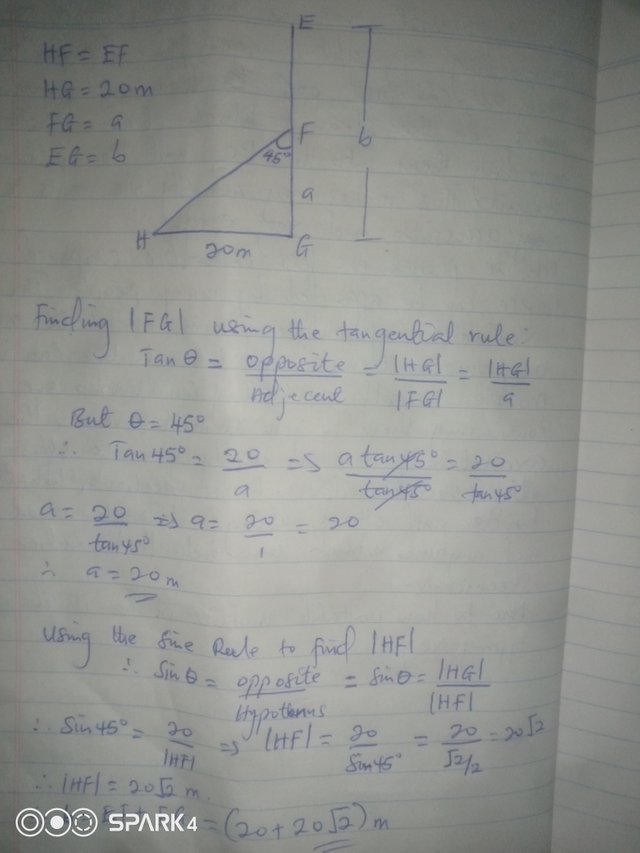 E
HF = EF
HG = 20m
FG = a
EG = b
F
b
45°
a
H
20m
G
Finding |FG| using the tangential rule:
Tan θ = opposite/Adjecent = |HG|/|FG| = |HG|/a
But θ = 45°
∴ Tan 45° = 20/a => a tan45°/tan45° = 20/tan45°
a = 20/tan45° => a = 20/1 = 20
∴ a = 20m
Using the Sine Rule to find |HF|
∴ Sin θ = opposite/Hypotenus = Sin θ = |HG|/|HF|
∴ Sin 45° = 20/|HF| => |HF| = 20/Sin45° = 20/√2/2 = 20√2
∴ |HF| = 20√2 m
= (20 + 20√2) m
SPARK 4